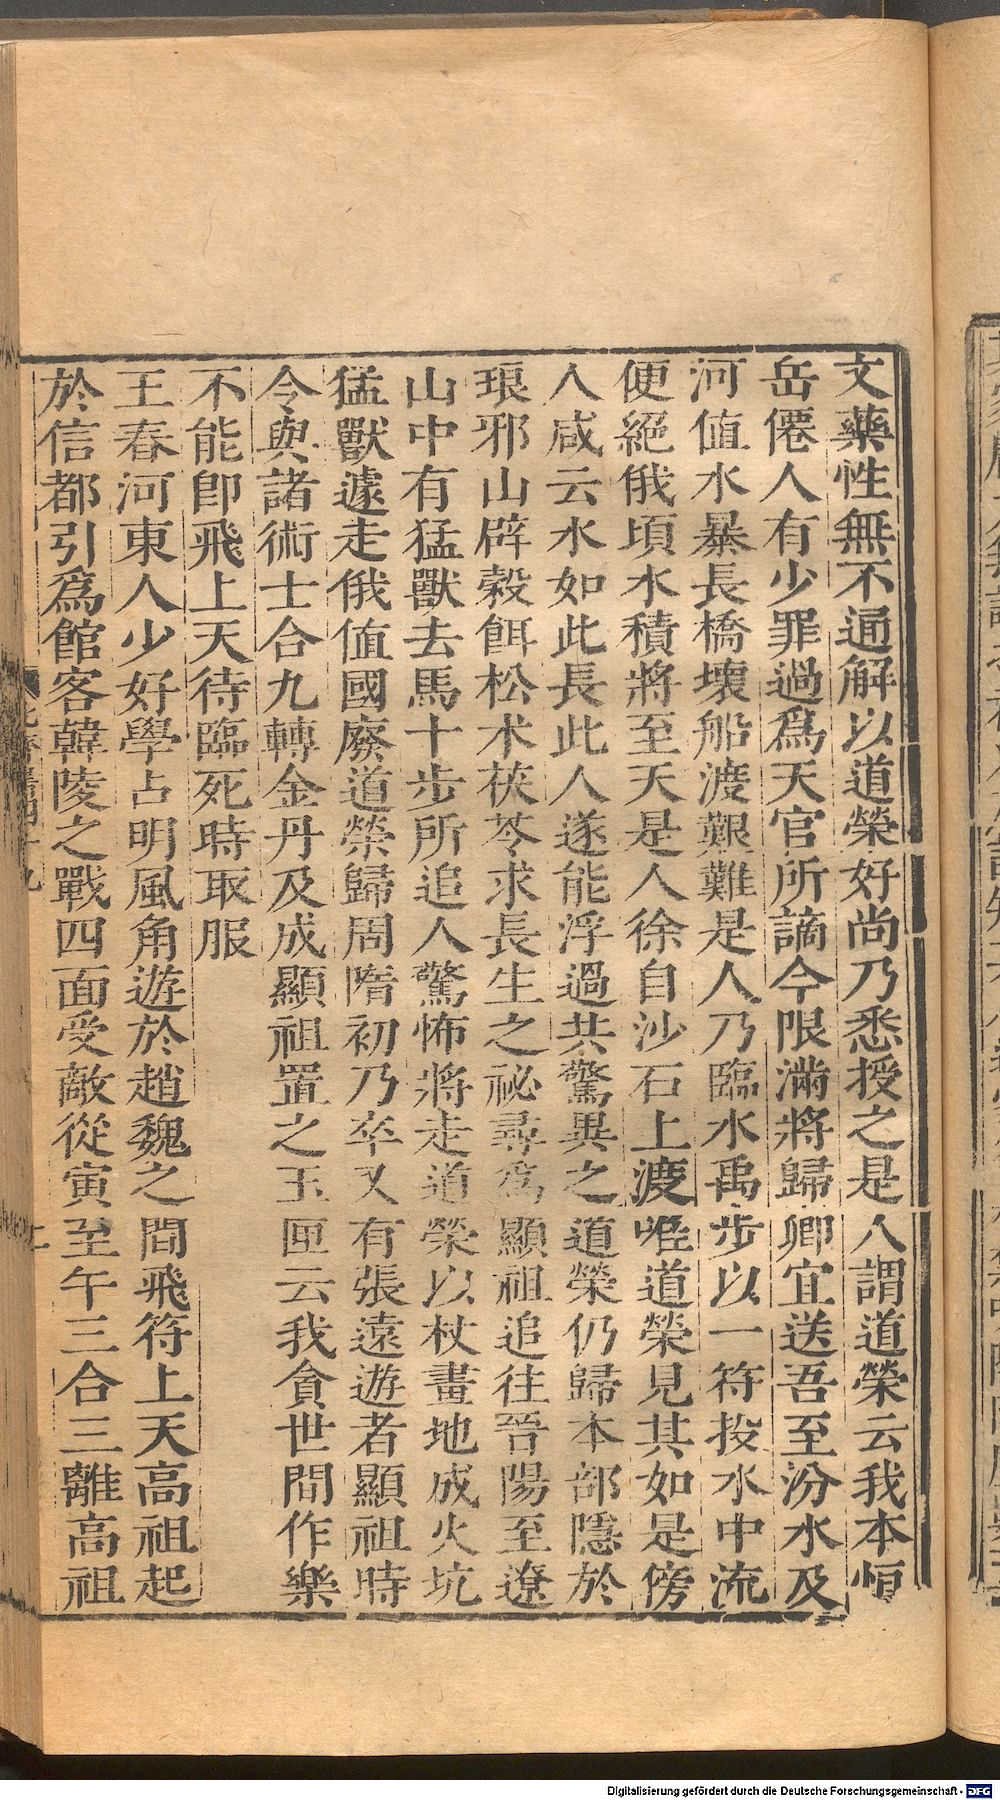 文藥性無不通解以道榮好尚乃悉授之是人謂道榮云我本恒
岳僊人有少罪過爲天官所謫今限滿將歸卿宜送吾至汾水及
河值水暴長橋壞船渡艱難是人乃臨水禹步以一符投水中流
便絕俄頃水積將至天是人徐自沙石上渡唯道榮見其如是傍
人咸云水如此長此人遂能浮過共驚異之道榮仍歸本部隱於
琅邪山辟穀餌松术茯苓求長生之祕尋爲顯祖追往晉陽至遼
山中有猛獸去馬十步所追人驚怖將走道榮以杖畫地成火坑
猛獸遽走俄值國廢道榮歸周隋初乃卒又有張遠遊者顯祖時
令與諸術士合九轉金丹及成顯祖置之玉匣云我貪世間作樂
不能卽飛上天待臨死時取服
王春河東人少好學占明風角遊於趙魏之間飛符上天高祖起
於信都引爲館客韓陵之戰四面受敵從寅至午三合三離高祖
Digitalisierung gefördert durch die Deutsche Forschungsgemeinschaft - DFG